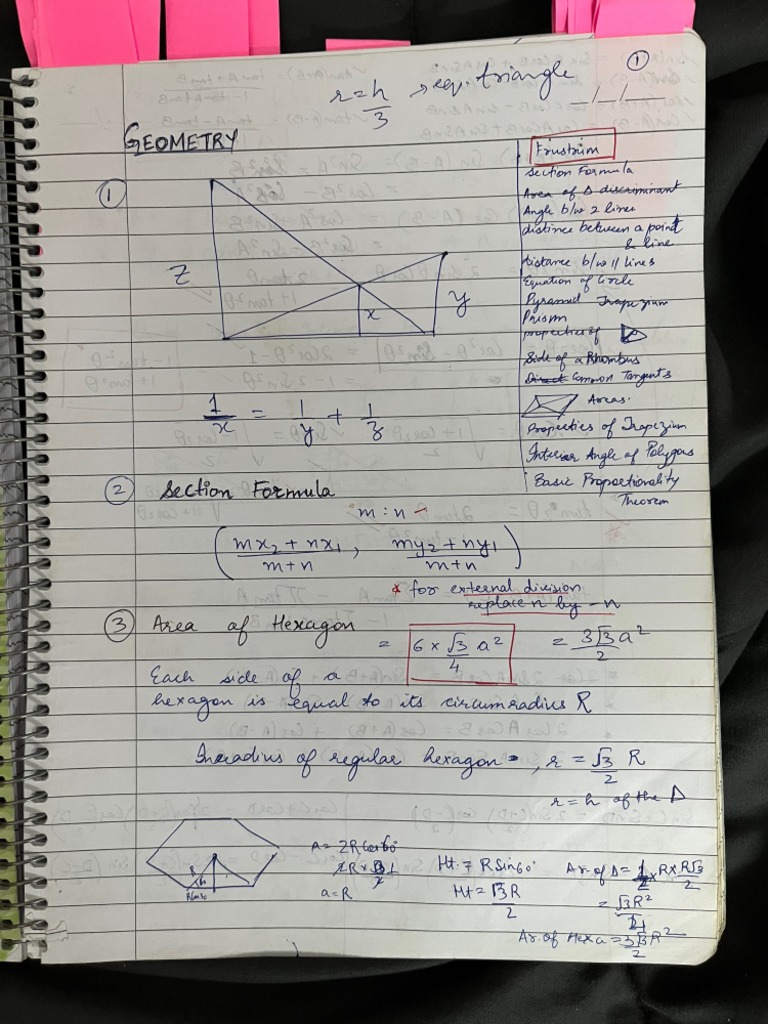 ①
r = h/3 → eq. triangle
GEOMETRY
①
z
x
y
1/x = 1/y + 1/z
Frustrum
Section Formula
Area of Δ discriminant
Angle b/w 2 lines
distince between a point
& line
distance b/w || lines
Equation of Circle
Pyramid Trapezium
Prism
properties of
Side of a Rhombus
Direct Common Tangents
Areas.
Properties of Trapezium
Interior Angle of Polygons
Basic Proportionality
Theorem
② Section Formula
m : n
( (mx₂ + nx₁)/(m + n) , (my₂ + ny₁)/(m + n) )
* for external division
replace n by -n
③ Area of Hexagon = 6 × √3/4 a² = 3√3 a²/2
Each side of a
hexagon is equal to its circumradius R
Inradius of regular hexagon, r = √3/2 R
r = h of the Δ
R
60
Rcos60
A = 2R cos60°
2R × 1/2
a = R
Ht = R Sin60°
Ht = √3R/2
Ar. of Δ = 1/2 × R × R√3/2
= √3R²/4
Ar. of Hexa = 3√3R²/2